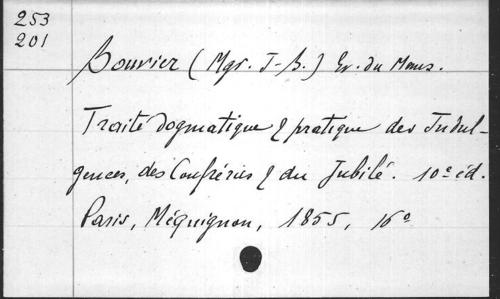 253
201
Bouvier (Mgr. J-B.) Ev. du Mans.
Traité dogmatique & pratique des Indul-
gences, des Confréries & du Jubilé. 10e éd.
Paris, Méquignon, 1855, 16o